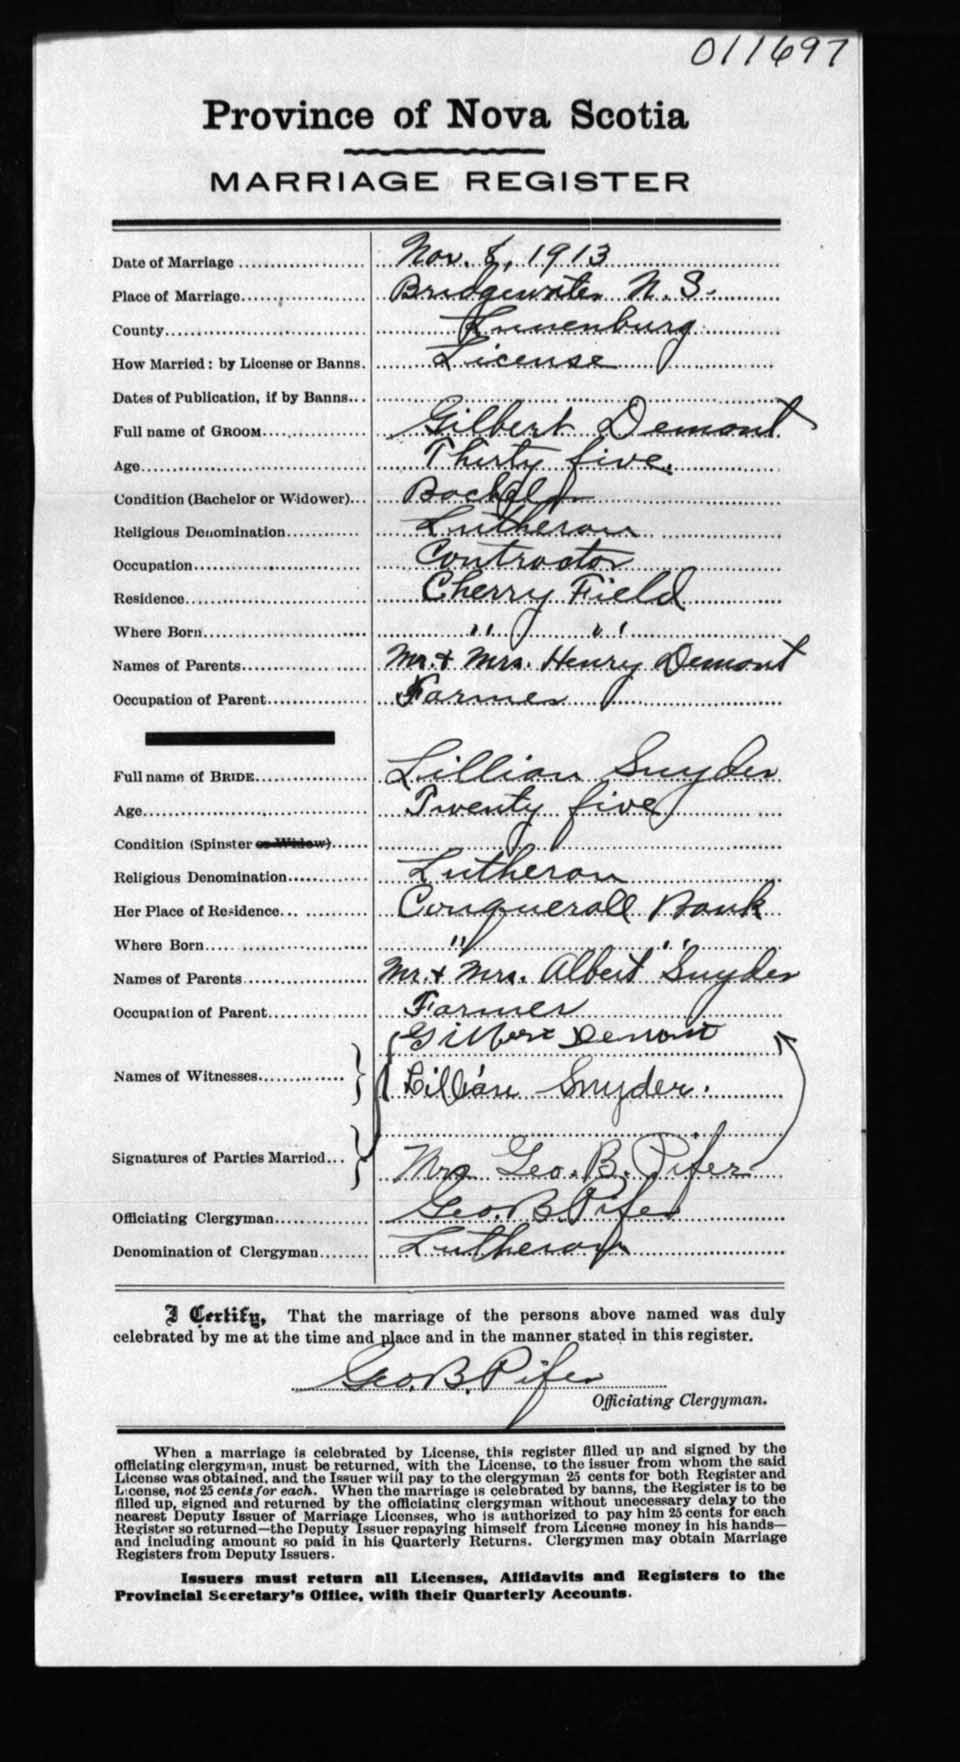 011697
Province of Nova Scotia
MARRIAGE REGISTER
Date of Marriage Nov. 8, 1913
Place of Marriage Bridgewater N.S.
County Lunenburg
How Married: by License or Banns. License
Dates of Publication, if by Banns
Full name of GROOM Gilbert Demont
Age Thirty five.
Condition (Bachelor or Widower) Bachelor
Religious Denomination Lutheran
Occupation Contractor
Residence Cherry Field
Where Born " "
Names of Parents Mr. & Mrs. Henry Demont
Occupation of Parent Farmer
Full name of BRIDE Lillian Snyder
Age Twenty five
Condition (Spinster or Widow)
Religious Denomination Lutheran
Her Place of Residence Conquerall Bank
Where Born " "
Names of Parents Mr. & Mrs. Albert Snyder
Occupation of Parent Farmer
Gilbert Demont
Names of Witnesses Lillian Snyder.
Signatures of Parties Married Mrs Geo. B. Pifer
Officiating Clergyman Geo. B. Pifer
Denomination of Clergyman Lutheran
I Certify, That the marriage of the persons above named was duly
celebrated by me at the time and place and in the manner stated in this register.
Geo. B. Pifer
Officiating Clergyman.
When a marriage is celebrated by License, this register filled up and signed by the
officiating clergyman, must be returned, with the License, to the issuer from whom the said
License was obtained, and the Issuer will pay to the clergyman 25 cents for both Register and
License, not 25 cents for each. When the marriage is celebrated by banns, the Register is to be
filled up, signed and returned by the officiating clergyman without unnecessary delay to the
nearest Deputy Issuer of Marriage Licenses, who is authorized to pay him 25 cents for each
Register so returned—the Deputy Issuer repaying himself from License money in his hands—
and including amount so paid in his Quarterly Returns. Clergymen may obtain Marriage
Registers from Deputy Issuers.
Issuers must return all Licenses, Affidavits and Registers to the
Provincial Secretary's Office, with their Quarterly Accounts.